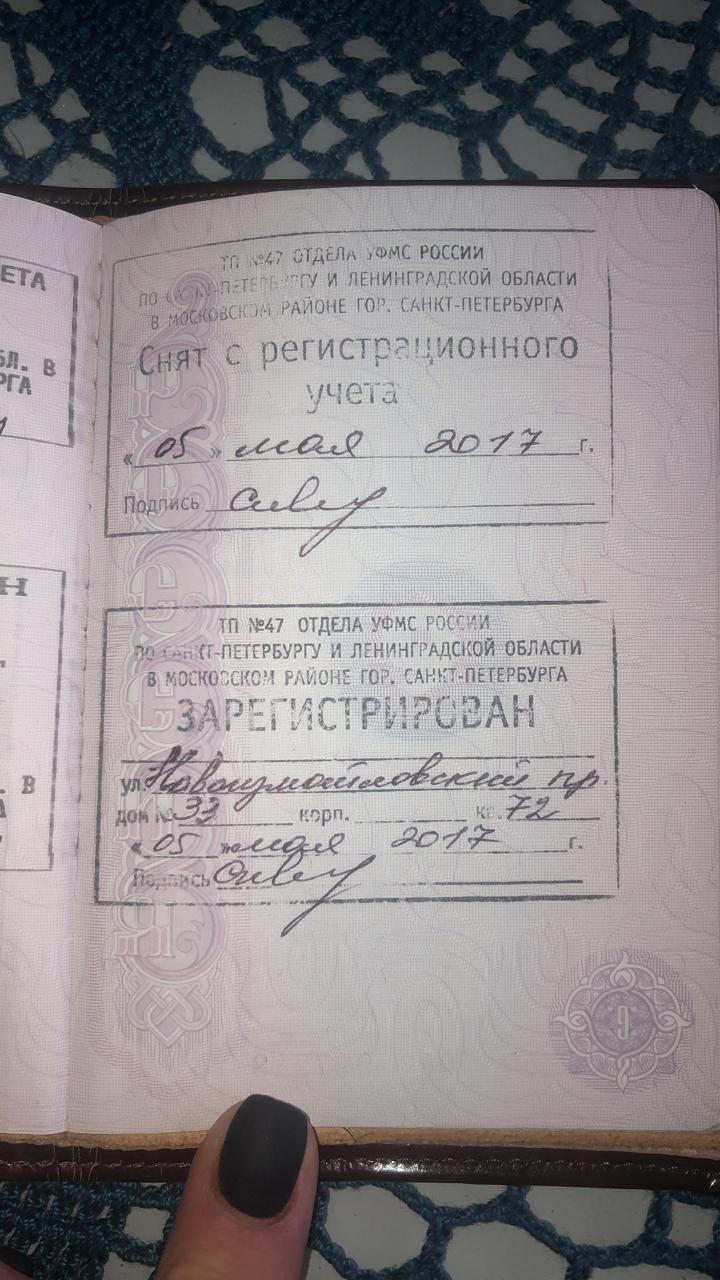 ЕТА
БЛ. В
РГА
Н
. В
А
ТП №47 ОТДЕЛА УФМС РОССИИ
ПО САНКТ-ПЕТЕРБУРГУ И ЛЕНИНГРАДСКОЙ ОБЛАСТИ
В МОСКОВСКОМ РАЙОНЕ ГОР. САНКТ-ПЕТЕРБУРГА
Снят с регистрационного
учета
« 05 » мая 2017 г.
Подпись
ТП №47 ОТДЕЛА УФМС РОССИИ
ПО САНКТ-ПЕТЕРБУРГУ И ЛЕНИНГРАДСКОЙ ОБЛАСТИ
В МОСКОВСКОМ РАЙОНЕ ГОР. САНКТ-ПЕТЕРБУРГА
ЗАРЕГИСТРИРОВАН
ул. Новоизмайловский пр.
дом № 33 корп. кв. 72
« 05 » мая 2017 г.
Подпись
9